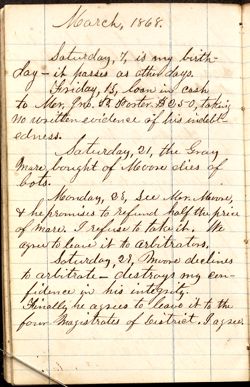 March, 1868.
Saturday, 7, is my birth-
day – it passes as other days.
Friday, 13, loan in cash
to Mr. Jno. R. Porter $250, taking
no written evidence of his indebt-
edness.
Saturday, 21, the Gray
Mare, bought of Moore dies of
bots.
Monday, 23, See Mr. Moore,
& he promises to refund half the price
of mare. I refuse to take it. We
agree to leave it to arbitrators.
Saturday, 28, Moore declines
to arbitrate – destroys my con-
fidence in his integrity.
Finally he agrees to leave it to the
four Magistrates of District. I agree.